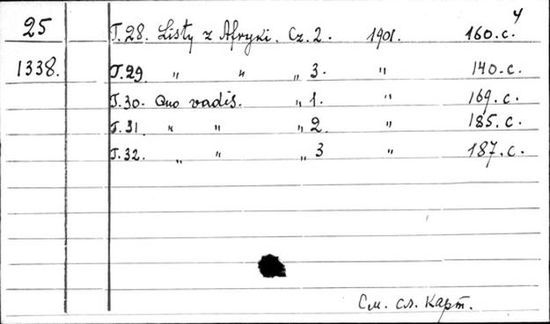 4
25 T.28. Listy z Afryki. Cz. 2. 1901. 160.c.
1338. T.29 „ „ „ 3. „ 140.c.
T.30. Quo vadis. „ 1. „ 169.c.
T.31. „ „ „ 2. „ 185.c.
T.32. „ „ „ 3 „ 187.c.
См. сл. карт.